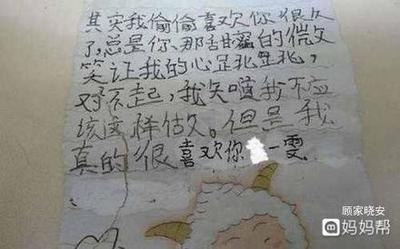 其实我偷偷喜欢你很久
了,总是你、那甜蜜的微
笑让我的心跳跳,
对不起,我知道我不应
该这样做。但是我
真的很喜欢你 一雯
顾家晓安
妈妈帮